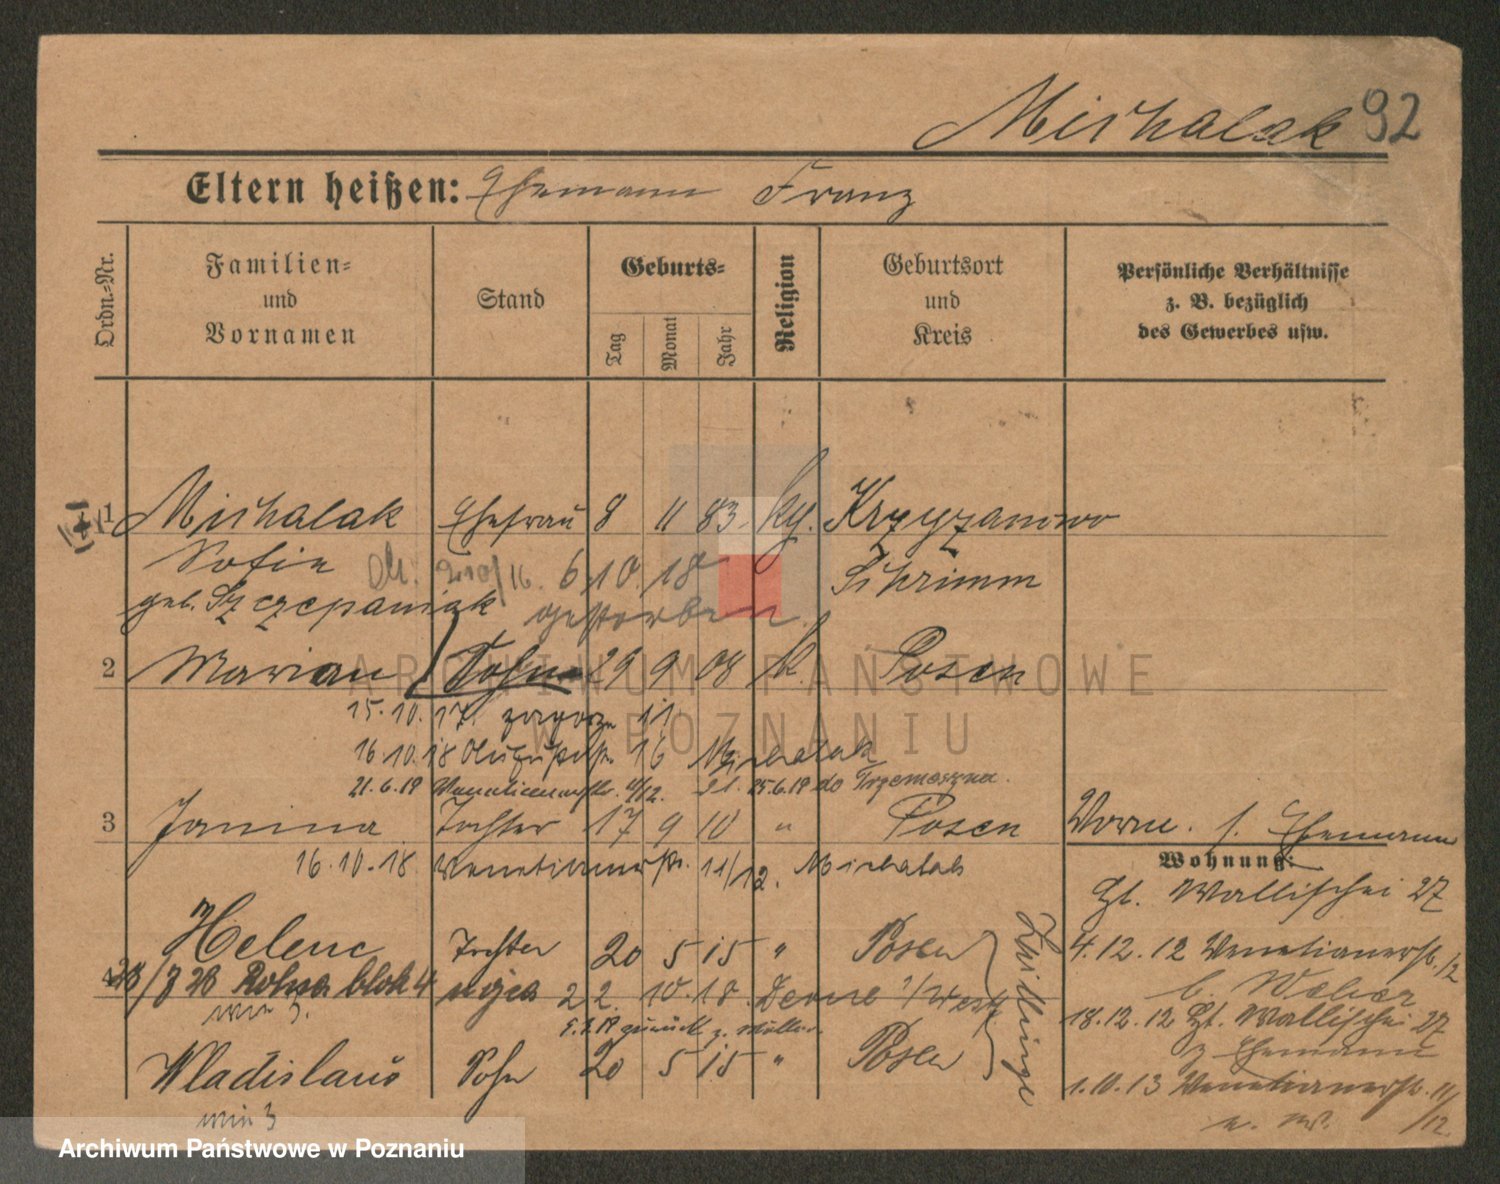 Michalak 92
Eltern heißen: Ehemann Franz
Ordn.-Nr.
Familien-
und
Vornamen
Stand
Geburts-
Tag
Monat
Jahr
Religion
Geburtsort
und
Kreis
Persönliche Verhältnisse
z. B. bezüglich
des Gewerbes usw.
1 Michalak Ehefrau 8 11 83 k. Krzyzanowo
Sofie 6 10 18 Schrimm
geb. Szczepaniak gestorben.
2 Marian Sohn 29 9 08 k. Posen
15.10.17. 11
16.10.18 16 Michalak
21.6.19 Venetianerstr. 11/12. 25.6.19 do Trzemeszna.
3 Janina Tochter 17 9 10 " Posen
16.10.18. Venetianerstr. 11/12. Michalak
Helene Tochter 20 5 15 " Posen
4 blok 4 22. 10.18.
min 3.
5.1.19 zurück z. Mutter.
Wladislaus Sohn 20 5 15 " Posen
min 3
Zwillinge
Vorm. s. Ehemann
Wohnung:
Gr. Wallischei 27
4.12.12 Venetianerstr. /12
b. Weber
18.12.12 Gr. Wallischei 27
z Ehemann
1.10.13 Venetianerstr. 11/12
ARCHIWUM PAŃSTWOWE
W POZNANIU
Archiwum Państwowe w Poznaniu